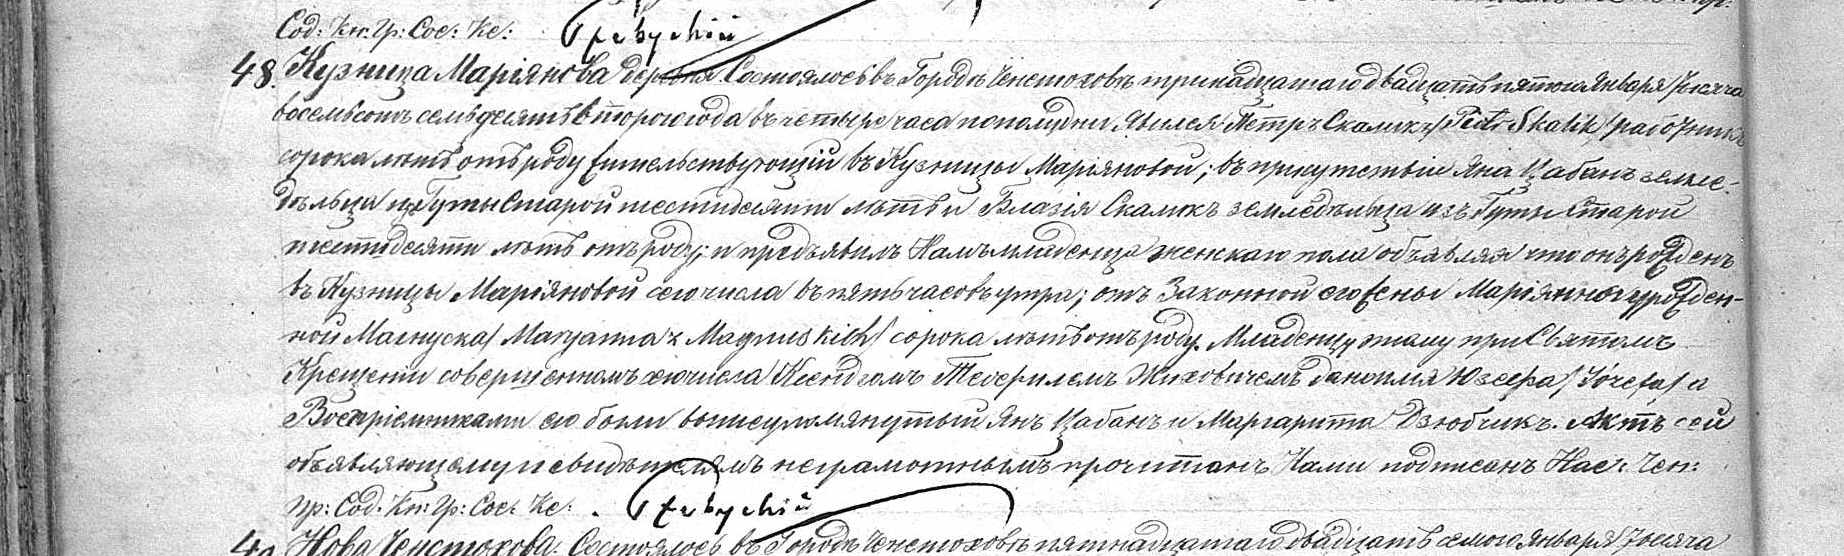 Сод: Кн: Гр: Сос: Кс:
48. Кузница Маріянова деревня. Состоялось въ Городѣ Ченстоховѣ тринадцатаго двадцать пятого Января Тысяча
восемьсотъ семьдесятъ второго года въ четыре часа пополудни. Явился Петръ Скаликъ /Piotr Skalik/ работникъ
сорока лѣтъ отъ роду жительствующій въ Кузницы Маріяновой; въ присутствіи Яна Цабанъ земле-
дѣльца изъ Гуты Старой шестидесяти лѣтъ и Блазія Скаликъ земледѣльца изъ Гуты Старой
шестидесяти лѣтъ отъ роду; и предъявилъ Намъ младенца женскаго пола объявляя что онъ рожденъ
въ Кузницы Маріяновой сего числа въ пять часовъ утра; отъ Законной его жены Маріянны урожден-
ной Магнуска /Maryanna z Magnuskich/ сорока лѣтъ отъ роду. Младенцу этому при Святомъ
Крещеніи совершенномъ сего числа Ксендзомъ Теофилемъ дано имя Юзефа /Józefa/ а
Воспріемниками его были вышеупомянутый Янъ Цабанъ и Маргарита Дзюбчикъ. Актъ сей
объявляющему и свидѣтелямъ неграмотнымъ прочитанъ Нами подписанъ Нас: Чен:
Пр: Сод: Кн: Гр: Сос: Кс:
Нова Ченстохова. Состоялось въ Городѣ Ченстоховѣ пятнадцатаго двадцать семого Января Тысяча